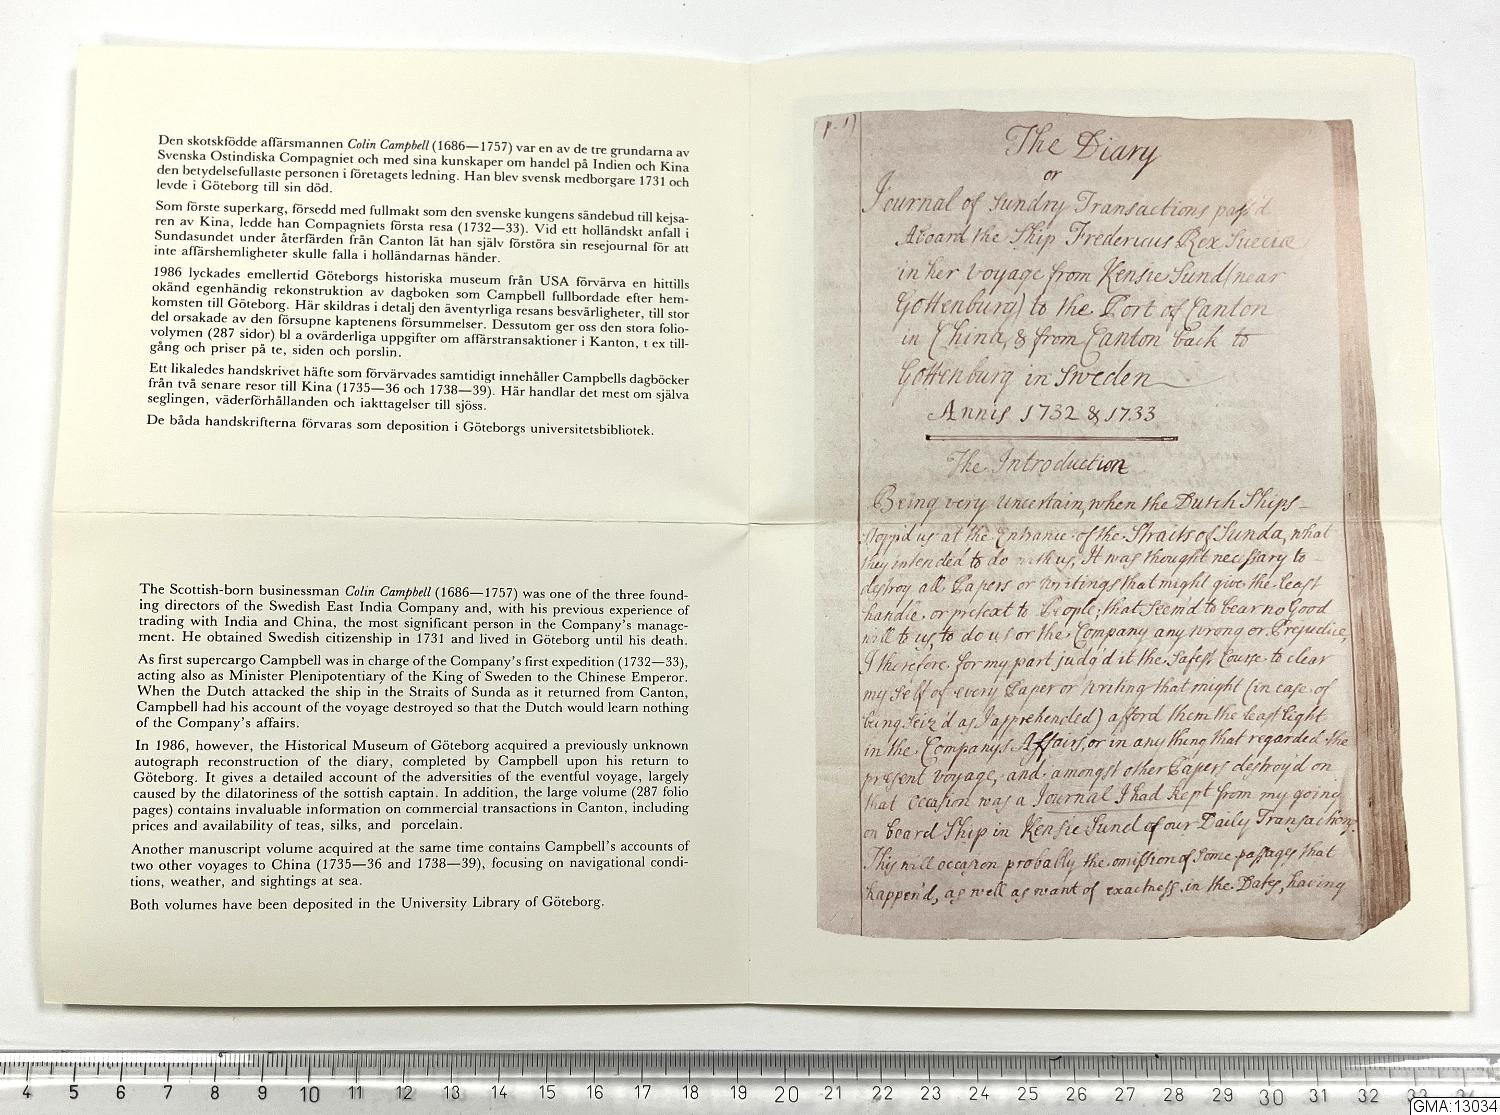 Den skotskfödde affärsmannen Colin Campbell (1686—1757) var en av de tre grundarna av
Svenska Ostindiska Compagniet och med sina kunskaper om handel på Indien och Kina
den betydelsefullaste personen i företagets ledning. Han blev svensk medborgare 1731 och
levde i Göteborg till sin död.
Som förste superkarg, försedd med fullmakt som den svenske kungens sändebud till kejsa-
ren av Kina, ledde han Compagniets första resa (1732—33). Vid ett holländskt anfall i
Sundasundet under återfärden från Canton lät han själv förstöra sin resejournal för att
inte affärshemligheter skulle falla i holländarnas händer.
1986 lyckades emellertid Göteborgs historiska museum från USA förvärva en hittills
okänd egenhändig rekonstruktion av dagboken som Campbell fullbordade efter hem-
komsten till Göteborg. Här skildras i detalj den äventyrliga resans besvärligheter, till stor
del orsakade av den försupne kaptenens försummelser. Dessutom ger oss den stora folio-
volymen (287 sidor) bl a ovärderliga uppgifter om affärstransaktioner i Kanton, t ex till-
gång och priser på te, siden och porslin.
Ett likaledes handskrivet häfte som förvärvades samtidigt innehåller Campbells dagböcker
från två senare resor till Kina (1735—36 och 1738—39). Här handlar det mest om själva
seglingen, väderförhållanden och iakttagelser till sjöss.
De båda handskrifterna förvaras som deposition i Göteborgs universitetsbibliotek.
The Scottish-born businessman Colin Campbell (1686—1757) was one of the three found-
ing directors of the Swedish East India Company and, with his previous experience of
trading with India and China, the most significant person in the Company's manage-
ment. He obtained Swedish citizenship in 1731 and lived in Göteborg until his death.
As first supercargo Campbell was in charge of the Company's first expedition (1732—33),
acting also as Minister Plenipotentiary of the King of Sweden to the Chinese Emperor.
When the Dutch attacked the ship in the Straits of Sunda as it returned from Canton,
Campbell had his account of the voyage destroyed so that the Dutch would learn nothing
of the Company's affairs.
In 1986, however, the Historical Museum of Göteborg acquired a previously unknown
autograph reconstruction of the diary, completed by Campbell upon his return to
Göteborg. It gives a detailed account of the adversities of the eventful voyage, largely
caused by the dilatoriness of the sottish captain. In addition, the large volume (287 folio
pages) contains invaluable information on commercial transactions in Canton, including
prices and availability of teas, silks, and porcelain.
Another manuscript volume acquired at the same time contains Campbell's accounts of
two other voyages to China (1735—36 and 1738—39), focusing on navigational condi-
tions, weather, and sightings at sea.
Both volumes have been deposited in the University Library of Göteborg.
(p. 1)
The Diary
or
Journal of Sundry Transactions pass'd
Aboard the Ship Fredericus Rex Sueciæ
in her Voyage from Kensie Sund (near
Gottenburg) to the Port of Canton
in China, & from Canton back to
Gottenburg in Sweden
Annis 1732 & 1733
The Introduction
Being very uncertain, when the Dutch Ships
stopp'd us at the Entrance of the Straits of Sunda, what
they intended to do with us, It was thought necessary to
destroy all Papers or writings that might give the least
handle or pretext to People, that seem'd to bear no Good
will to us, to do us or the Company any wrong or Prejudice,
I therefore for my part judg'd it the Safest Course to clear
my Self of every Paper or writing that might (in case of
being Seiz'd as I apprehended) afford them the least light
in the Companys Affairs, or in any thing that regarded the
present Voyage, and amongst other Papers destroy'd on
that occasion was a Journal I had kept from my going
on board Ship in Kensie Sund of our Daily Transactions.
This will occasion probably the omission of Some passages that
happen'd, as well as want of exactness in the Dates, having
4 5 6 7 8 9 10 11 12 13 14 15 16 17 18 19 20 21 22 23 24 25 26 27 28 29 30 31 32 33 34
GMA:13034